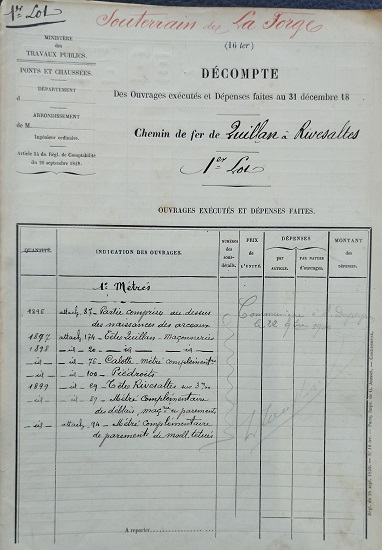 1er Lot
Souterrain de La Forge
(16 ter)
MINISTÈRE
des
TRAVAUX PUBLICS.
PONTS ET CHAUSSÉES.
DÉPARTEMENT
d
ARRONDISSEMENT
de M.
Ingénieur ordinaire.
Article 24 du Règl. de Comptabilité
du 28 septembre 1849.
DÉCOMPTE
Des Ouvrages exécutés et Dépenses faites au 31 décembre 18
Chemin de fer de Quillan à Rivesaltes
1er Lot
OUVRAGES EXÉCUTÉS ET DÉPENSES FAITES.
QUANTITÉ.
INDICATION DES OUVRAGES.
NUMÉROS
des
sous-
détails.
PRIX
de
L'UNITÉ.
DÉPENSES
par
ARTICLE.
PAR NATURE
d'ouvrages.
MONTANT
des
DÉPENSES.
1° Métrés
1896 attach. 85 - Partie comprise au dessus
de naissances des arceaux
1897 attach. 174 - Têtes Quillan - Maçonneries
1898 - id - 20 - id - id -
- id - id - 76 - Calotte métré complément
- id - id - 100 - Piédroits
1899 - id - 89 - Têtes Rivesaltes
- id - id - 87 - Métré complémentaire
de déblais, maç. et parements
- id - attach. 94 - Métré complémentaire
de parements de moell. têtués
Communiqué à M.
le 22
A reporter